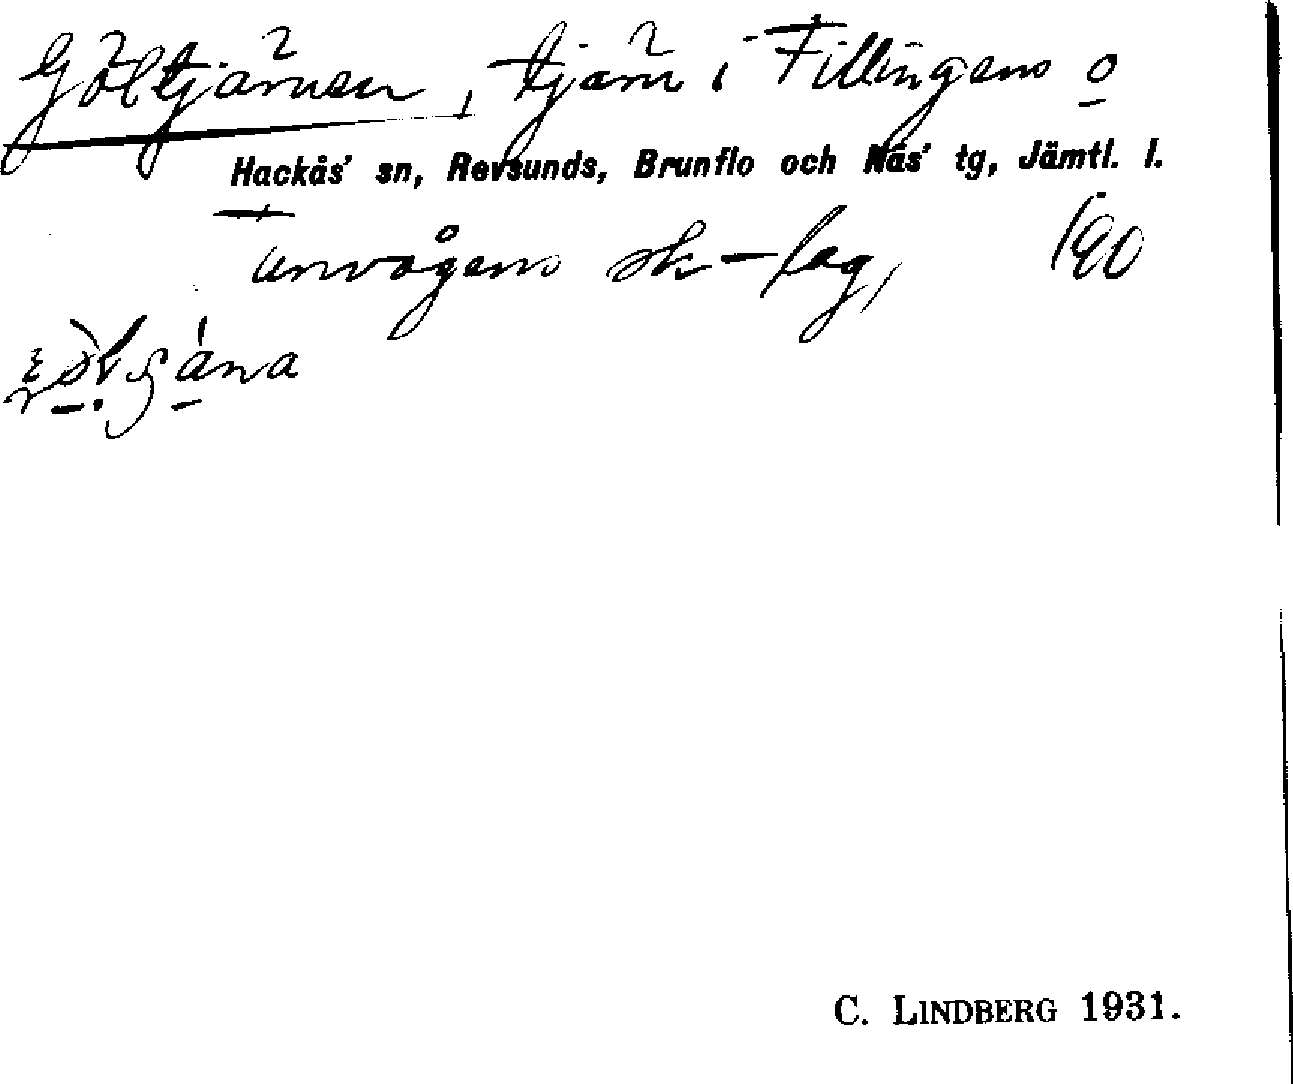 Göltjärnen, tjärn i Fillingens o
Hackås' sn, Revsunds, Brunflo och Näs' tg, Jämtl. l.
Tanvågens sk-lag, 190
C. LINDBERG 1931.